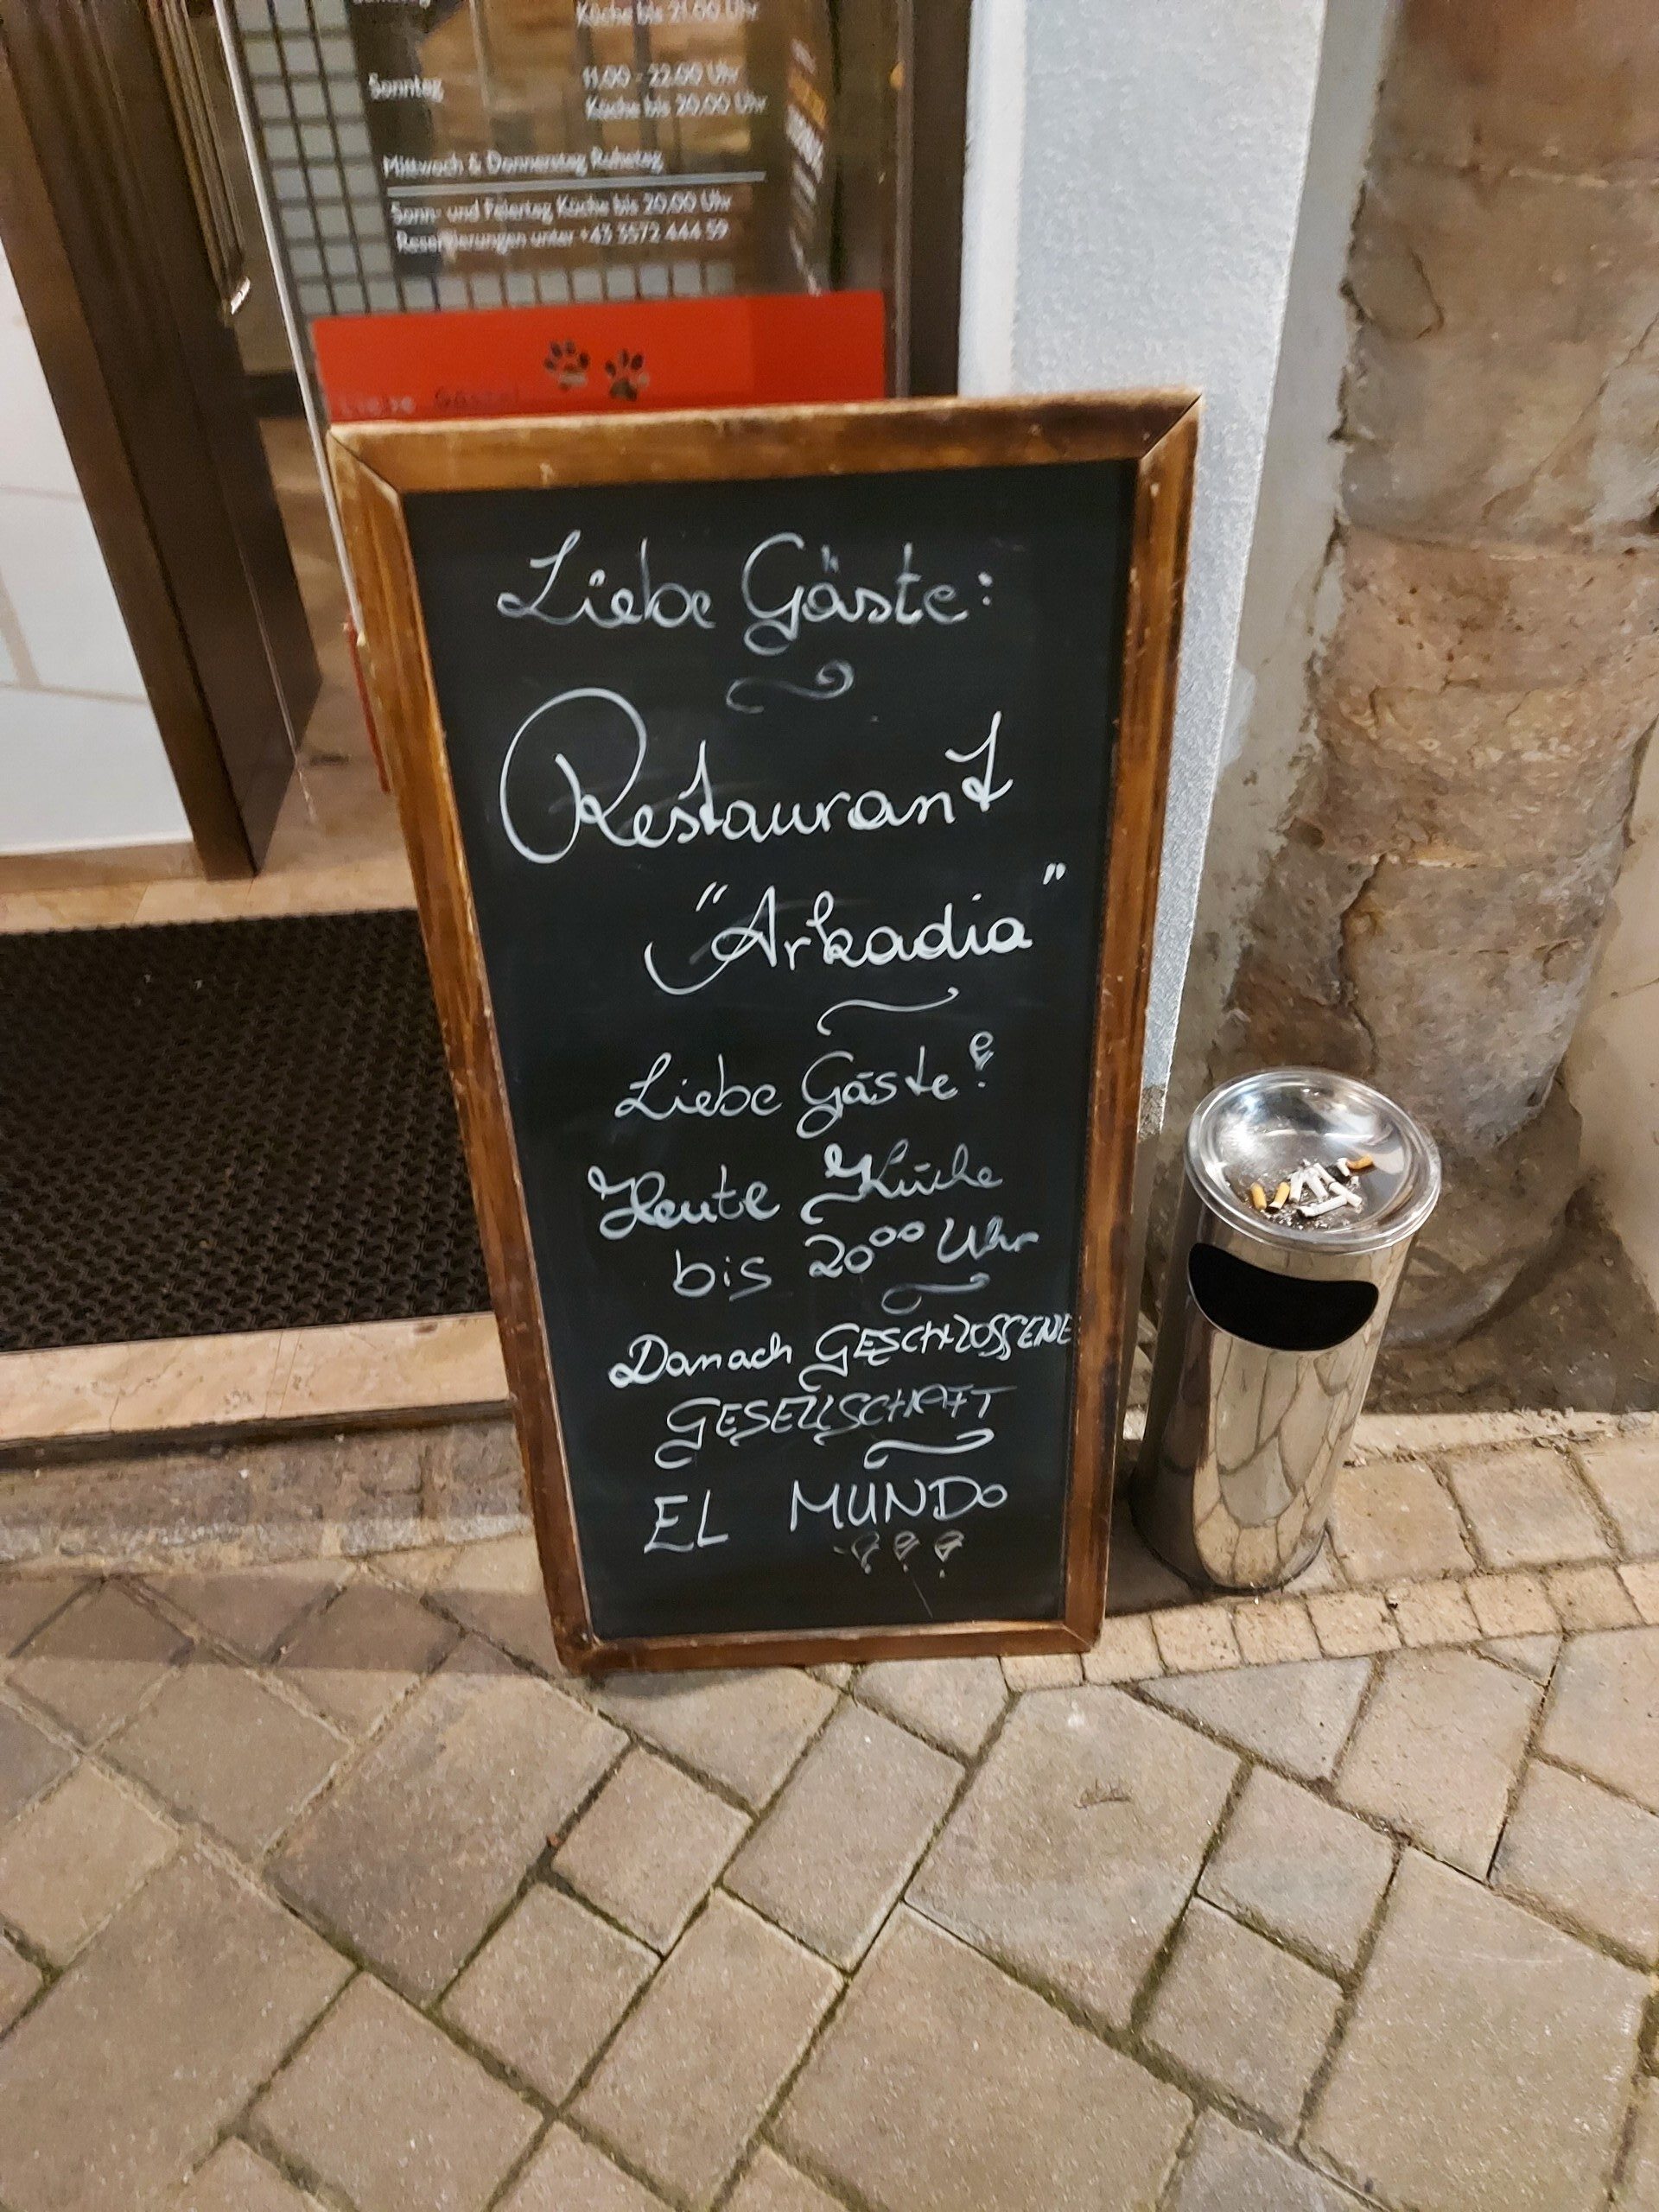 Küche bis 21.00 Uhr
Sonntag 11.00 - 22.00 Uhr
Küche bis 20.00 Uhr
Mittwoch & Donnerstag Ruhetag
Sonn- und Feiertag Küche bis 20.00 Uhr
Reservierungen unter +43 3572 444 59
Liebe Gäste!
Liebe Gäste:
Restaurant
"Arkadia"
Liebe Gäste!
Heute Küche
bis 20⁰⁰ Uhr
Danach GESCHLOSSENE
GESELLSCHAFT
EL MUNDO
!!!